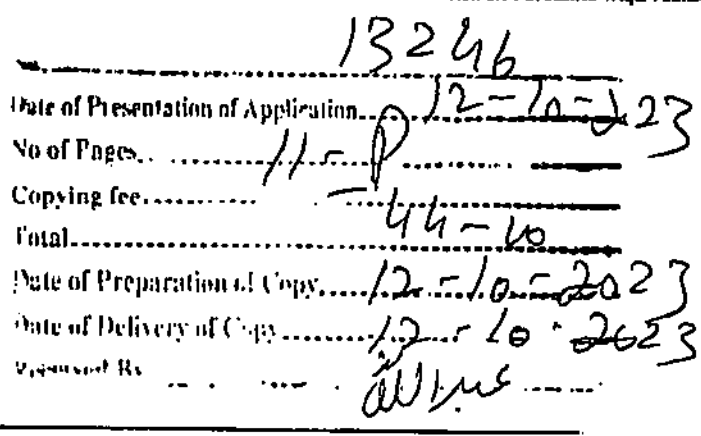 13246
Date of Presentation of Application 12-10-2023
No of Pages 11-P
Copying fee
Total 44-10
Date of Preparation of Copy 12-10-2023
Date of Delivery of Copy 12-10-2023
Received By عبداللہ